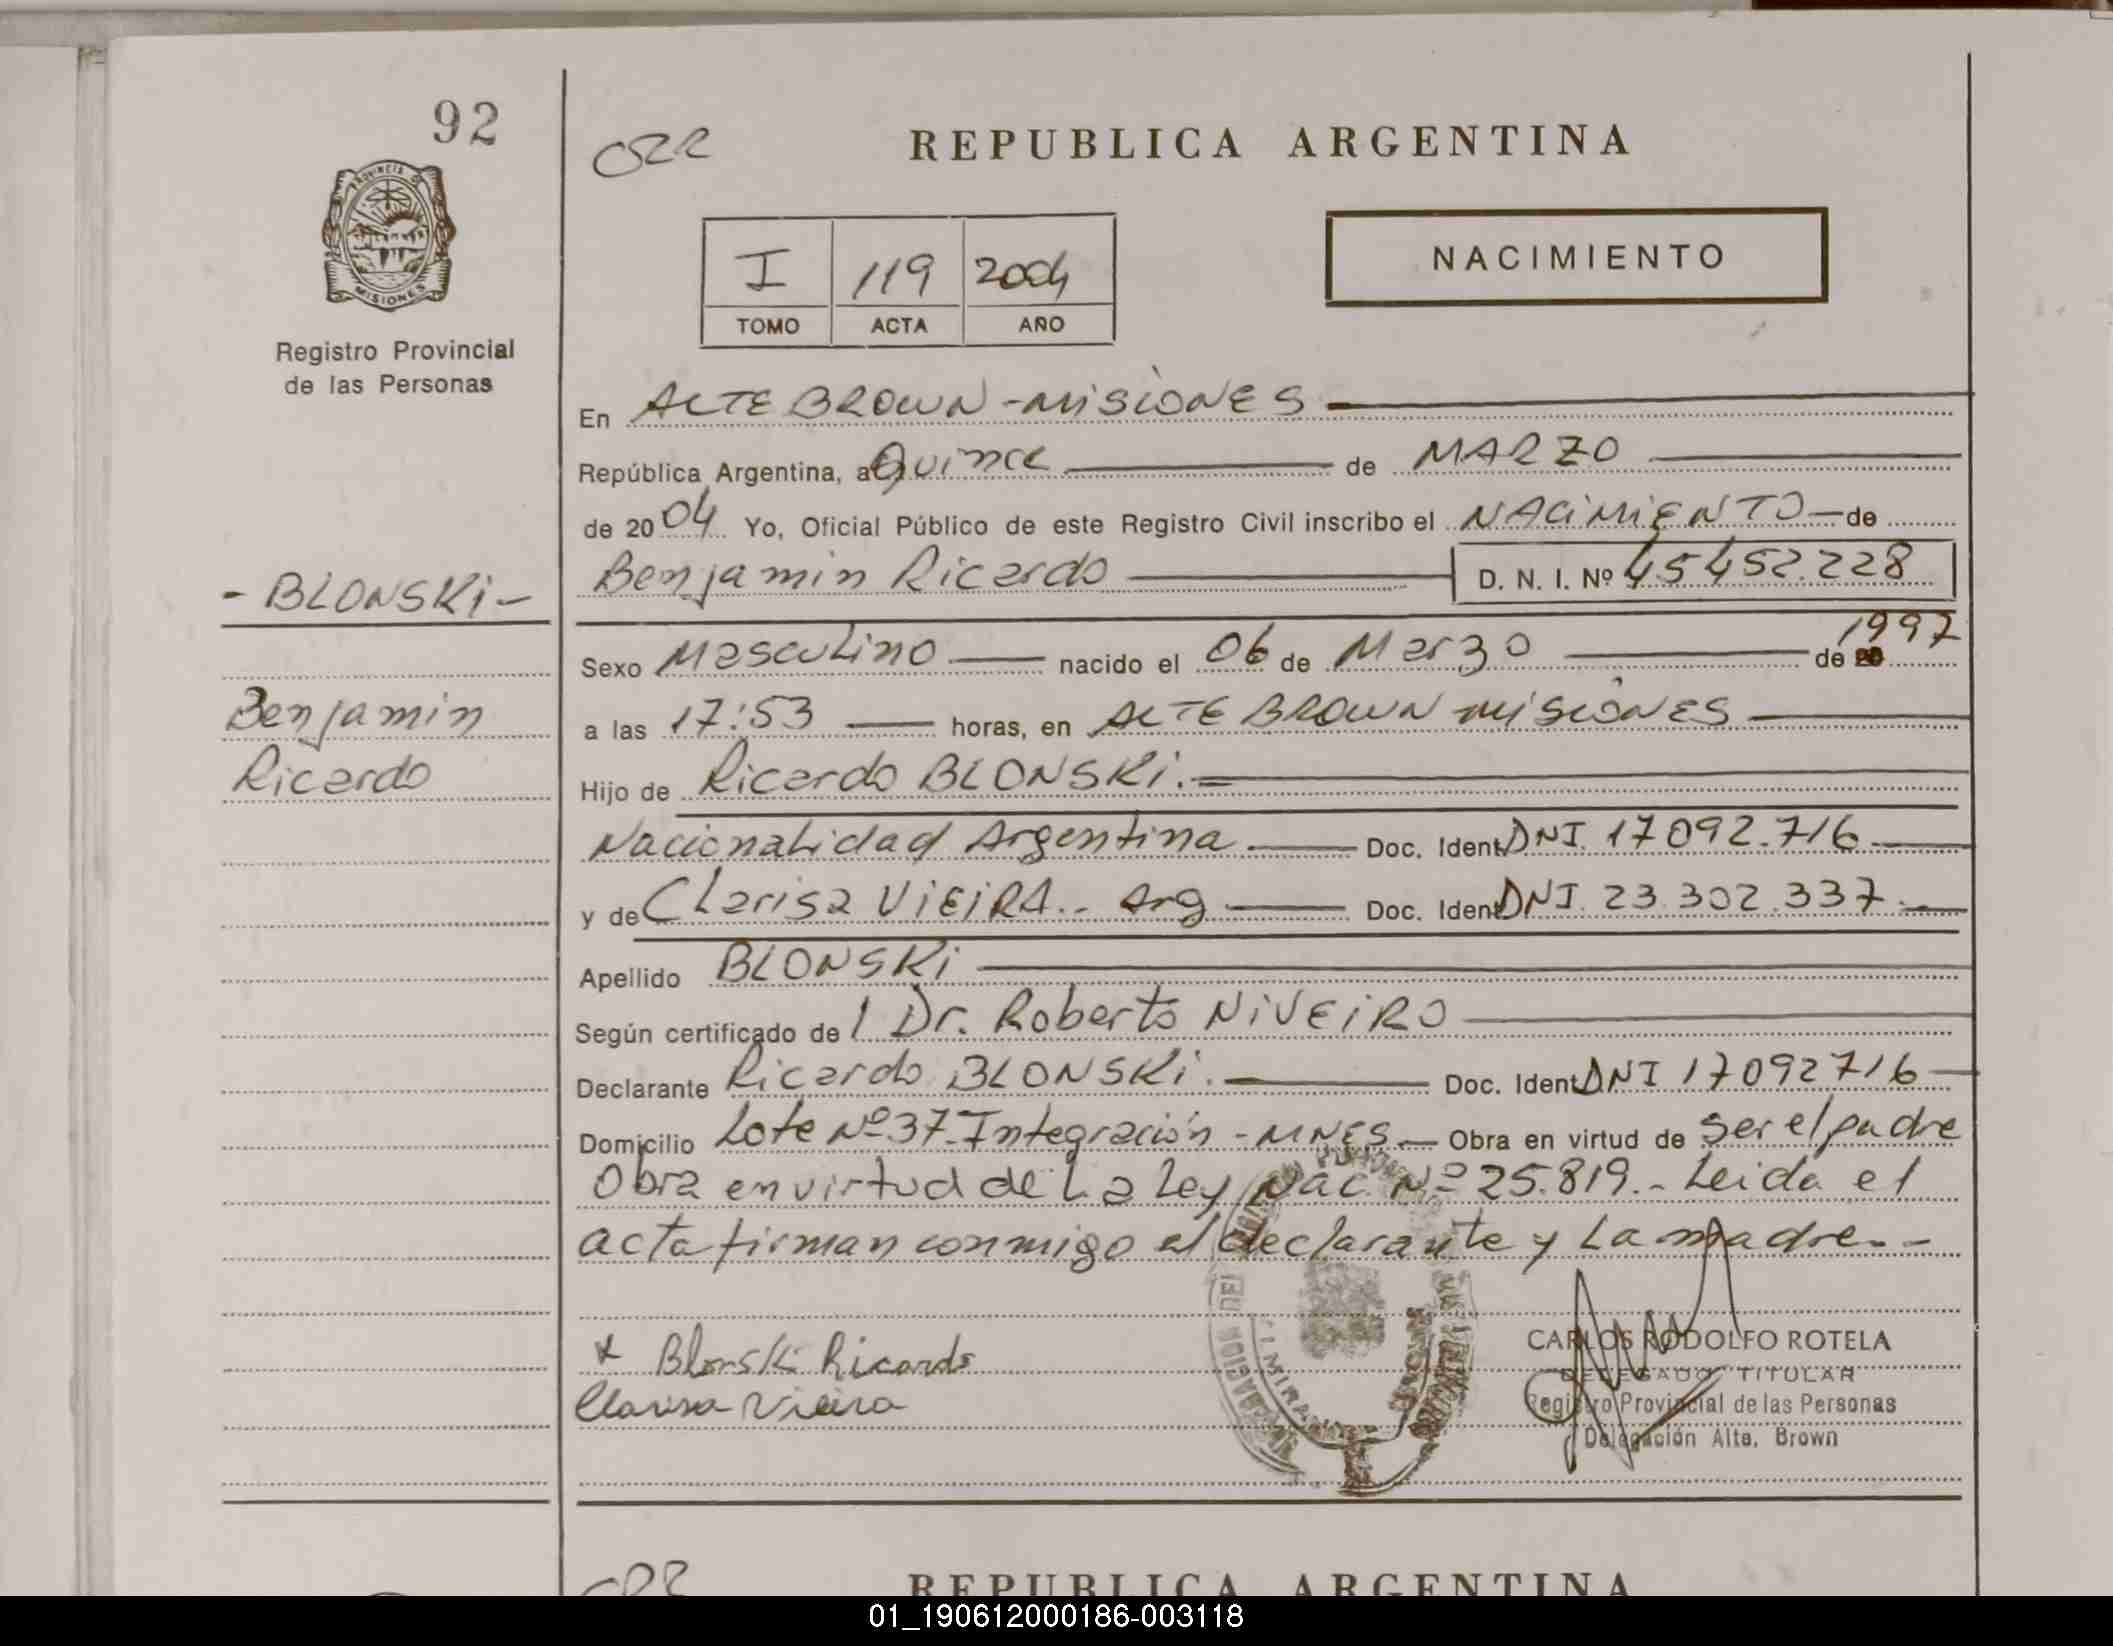 92
REPUBLICA ARGENTINA
NACIMIENTO
I 119 2004
TOMO ACTA AÑO
PROVINCIA D
MISIONES
Registro Provincial
de las Personas
En ALTE BROWN - MISIONES
República Argentina, a Quince de MARZO
de 2004 Yo, Oficial Público de este Registro Civil inscribo el NACIMIENTO de
- BLONSKI -
Benjamin Ricardo D. N. I. Nº 45452.228
Sexo Masculino nacido el 06 de Marzo de 1997
Benjamin
Ricardo
a las 17:53 horas, en ALTE BROWN MISIONES
Hijo de Ricardo BLONSKI.
Nacionalidad Argentina Doc. Ident DNI. 17092.716
y de Clarisa VIEIRA.. Arg Doc. Ident DNI. 23.302.337.
Apellido BLONSKI
Según certificado de l Dr. Roberto NIVEIRO
Declarante Ricardo BLONSKI. Doc. Ident DNI 17092716
Domicilio Lote Nº 37. Integración - MNES. Obra en virtud de ser el padre
Obra en virtud de La Ley Nac. Nº 25.819.- Leida el
acta firman conmigo el declarante y La madre.-
x Blonski Ricardo
Clarisa Vieira
CARLOS RODOLFO ROTELA
DELEGADO TITULAR
Registro Provincial de las Personas
Delegación Alte. Brown
REPUBLICA ARGENTINA
01_190612000186-003118